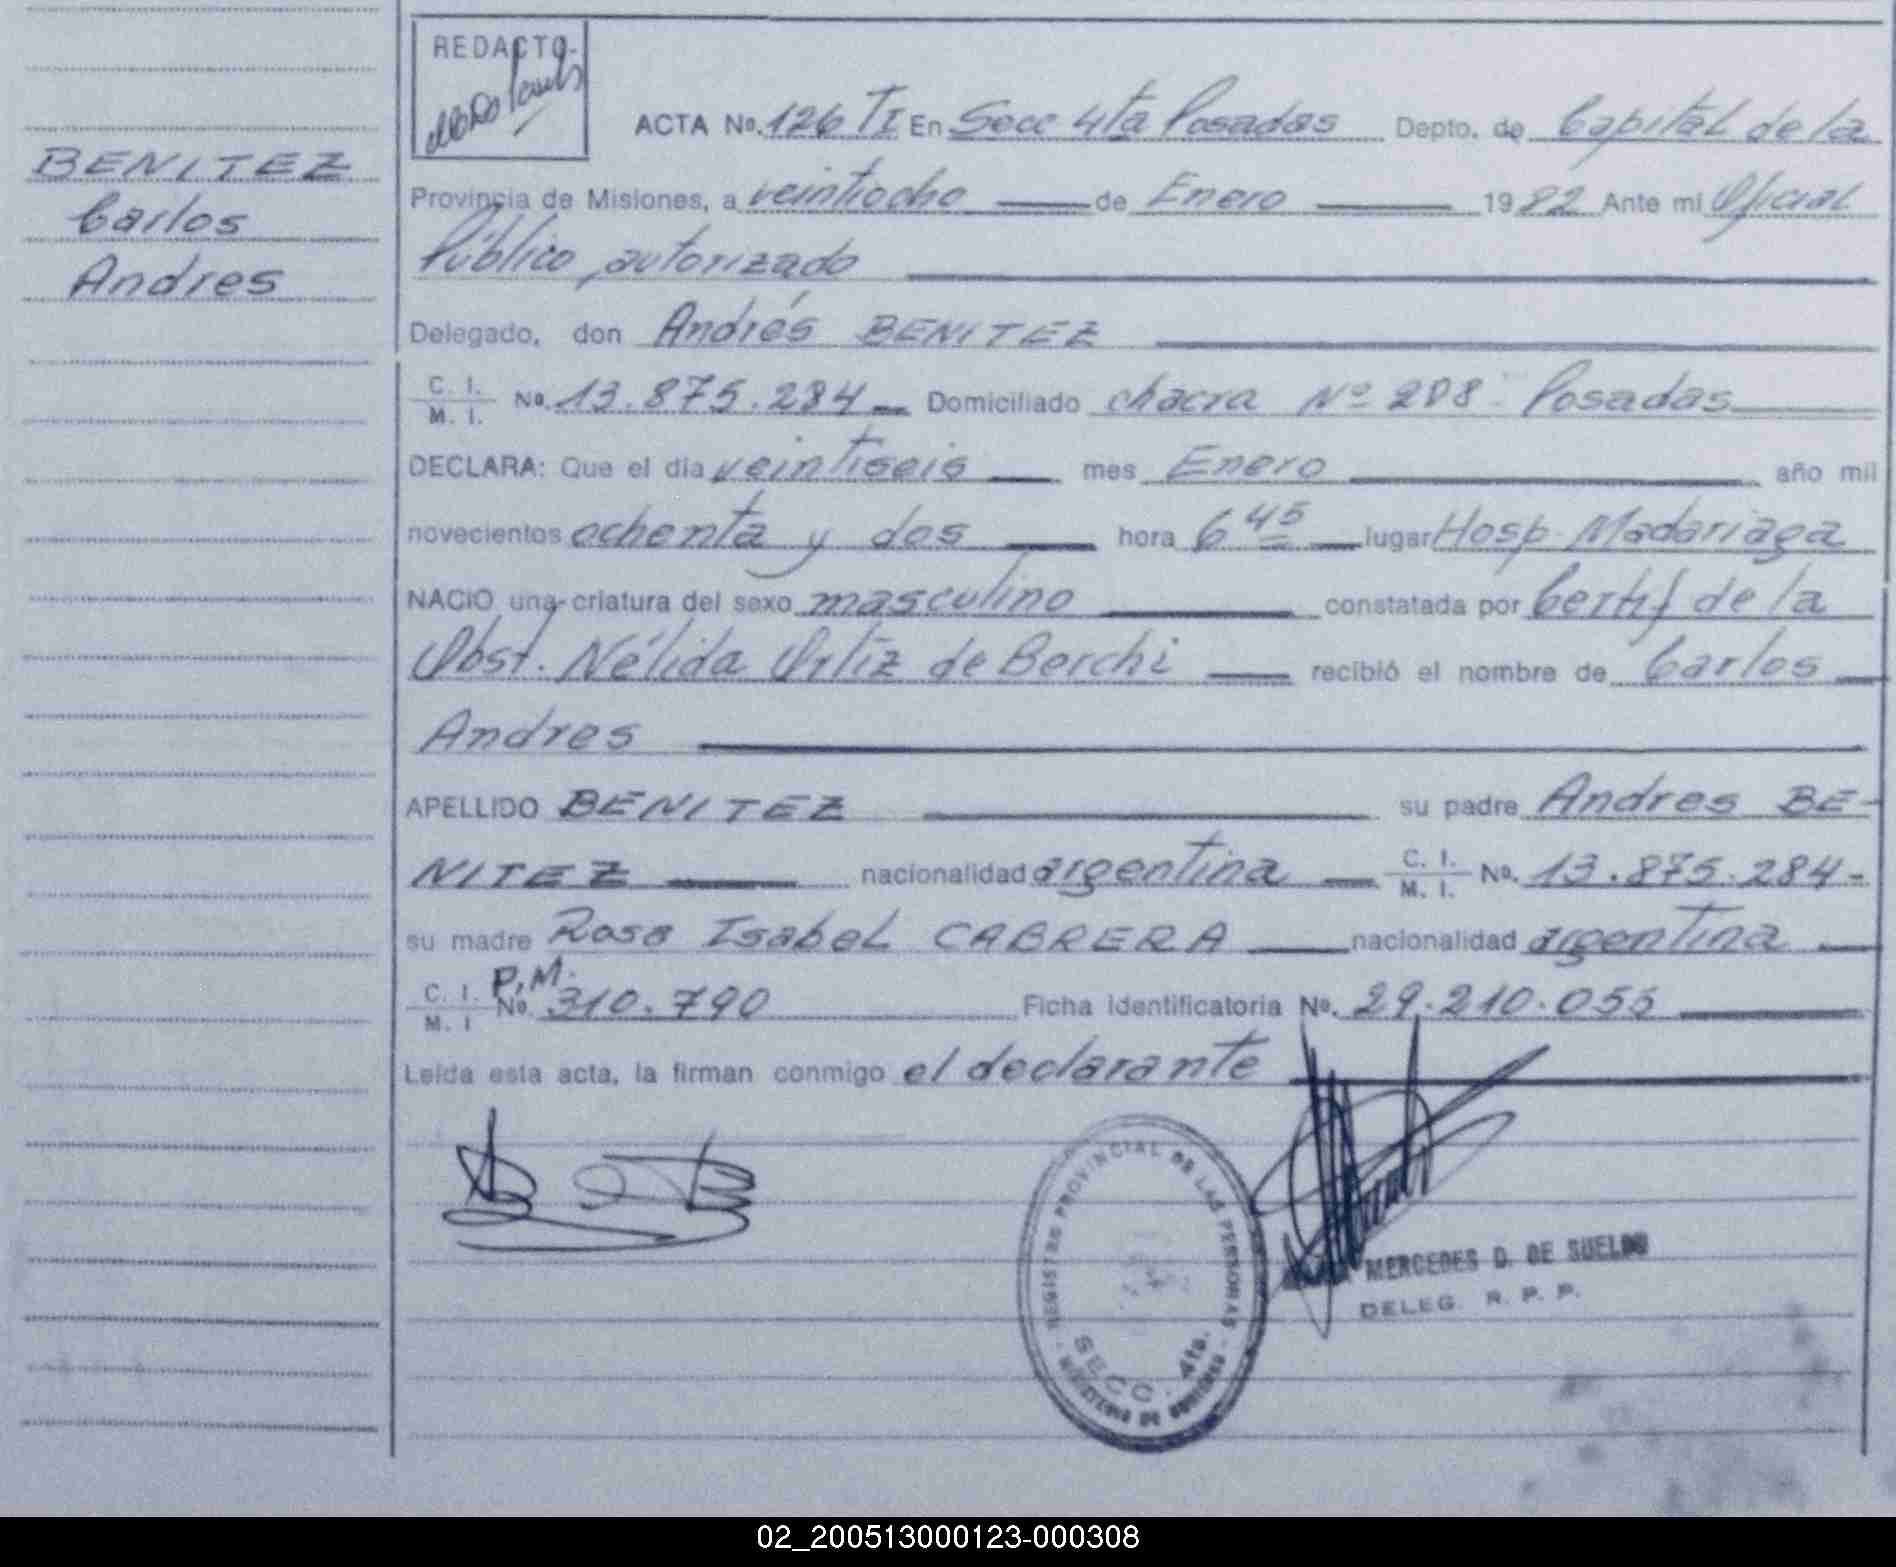 REDACTO-
ACTA No. 126 TI En Secc 4ta Posadas Depto. de Capital de la
BENITEZ
Carlos
Andres
Provincia de Misiones, a veintiocho de Enero 1982 Ante mi Oficial
Público autorizado
Delegado, don Andrés BENITEZ
C. I.
M. I. No. 13.875.284 Domiciliado chacra Nº 208 Posadas
DECLARA: Que el día veintiseis mes Enero año mil
novecientos ochenta y dos hora 6 45 lugar Hosp. Madariaga
NACIO una criatura del sexo masculino constatada por Certif de la
Obst. Nélida Ortiz de Berchi recibió el nombre de Carlos
Andres
APELLIDO BENITEZ su padre Andres BE-
NITEZ nacionalidad argentina C. I. M. I. No. 13.875.284-
su madre Rosa Isabel CABRERA nacionalidad argentina
P.M.
C. I. M. I No. 310.790 Ficha Identificatoria No. 29.210.055
Leída esta acta, la firman conmigo el declarante
REGISTRO PROVINCIAL DE LAS PERSONAS
SECC. 4ta.
MINISTERIO DE GOBIERNO
MERCEDES D. DE SUELDO
DELEG. R. P. P.
02_200513000123-000308